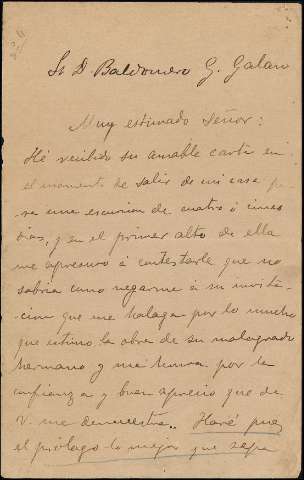 Sr D Baldomero G. Galan
Muy estimado Señor:
Hé recibido su amable carta en
el momento de salir de mi casa pa-
ra una escursion de cuatro ó cinco
dias, y en el primer alto de ella
me apresuro á contestarle que no
sabria como negarme á su invita-
cion que me halaga por lo mucho
que estimo la obra de su malogrado
hermano y me honra por la
confianza y buen aprecio que de
V. me demuestra. Haré pues
el prólogo lo mejor que sepa